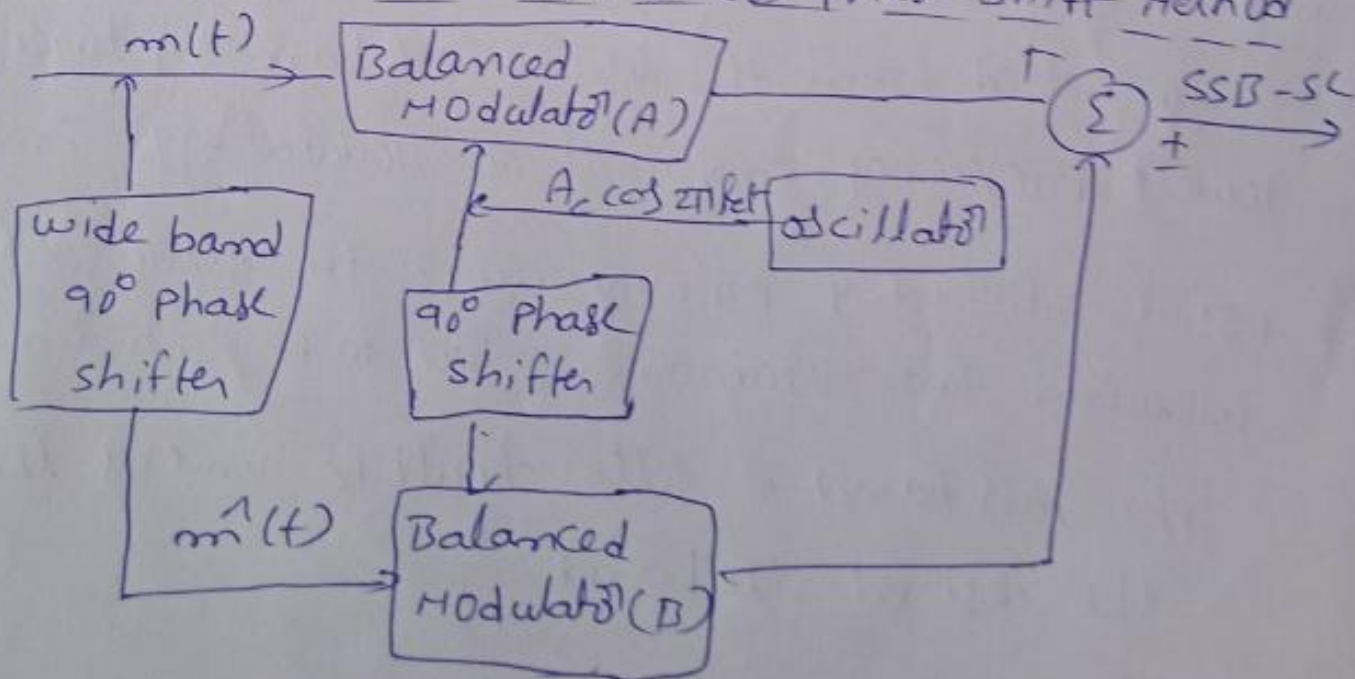 Phase Shift Method
m(t)
Balanced
Modulator(A)
Σ
SSB-SC
+
±
Ac cos 2πfct
oscillator
wide band
90° Phase
shifter
90° Phase
shifter
m^(t)
Balanced
Modulator(B)